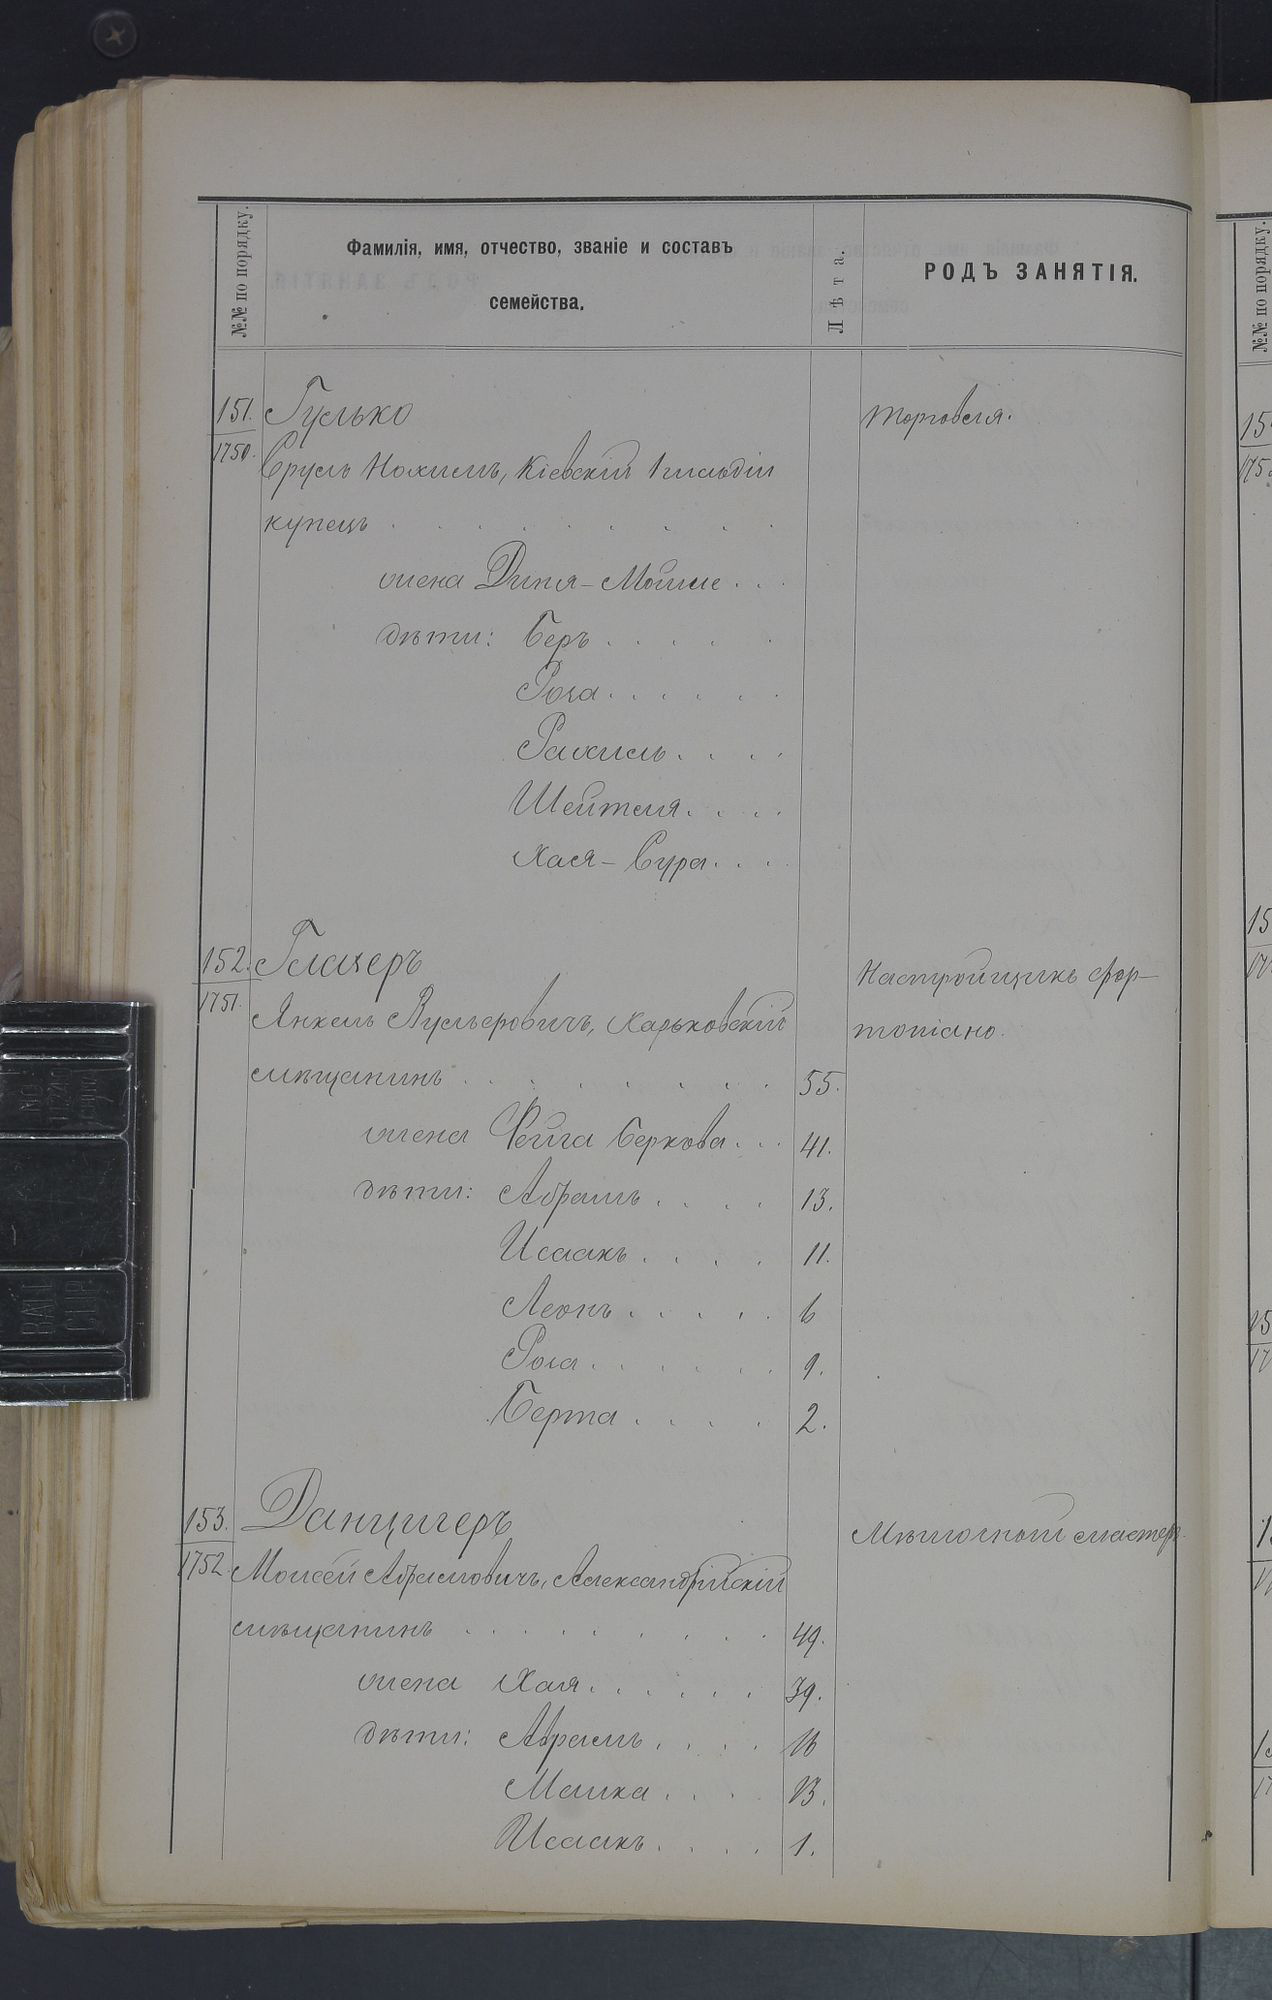 №№ по порядку.
Фамилія, имя, отчество, званіе и составъ
семейства.
Лѣта.
РОДЪ ЗАНЯТІЯ.
№№ по порядку.
151. Гулько
Торговля.
1750. Сруль Нохимъ, Кіевскій 1 гильдіи
купецъ
жена Дыня-Мойше
дѣти: Беръ
Роза
Рахиль
Шейтля
Хася-Сура
152. Глазеръ
Настройщикъ фор-
1751. Янкель Вульфовичъ, Харьковскій
топіано.
мѣщанинъ 55.
жена Фейга Беркова 41.
дѣти: Абрамъ 13.
Исаакъ 11.
Леонъ 6
Роза 9.
Берта 2.
153. Данцигеръ
Мѣшочный мастеръ
1752. Моисей Абрамовичъ, Александрійскій
мѣщанинъ 49.
жена Хая 39.
дѣти: Абрамъ 16
Маика 13.
Исаакъ 1.
BALL
CLIP